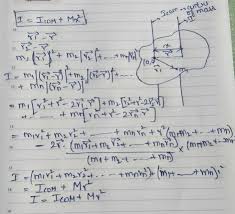 I = ICOM + Mr²
I com → centre of mass
r⃗i - r⃗
r⃗i - r⃗
m1[r⃗]² + m2[r⃗]² + ... + mn[r⃗]²
I = m1[(r⃗1 - r⃗)]² + m2[(r⃗2 - r⃗)]² + ...
+ mn[(r⃗n - r⃗)]²
= m1[r1² + r² - 2r⃗1·r⃗] + m2[r2² + r² - 2r⃗2·r⃗]
+ mn[rn² + r² - 2r⃗n·r⃗]
m1r1² + m2r2² + ... + mnrn² + r²(m1 + m2 + ... + mn)
- 2r⃗ (m1r⃗1 + m2r⃗2 + ... + mnr⃗n) × (m1+m2+...+mn)
(m1 + m2 + ... + mn)
I = (m1r1² + m2r2² + ... + mnrn²) + (m1 + ... + mn)r²
= ICOM + Mr²
I = ICOM + Mr²